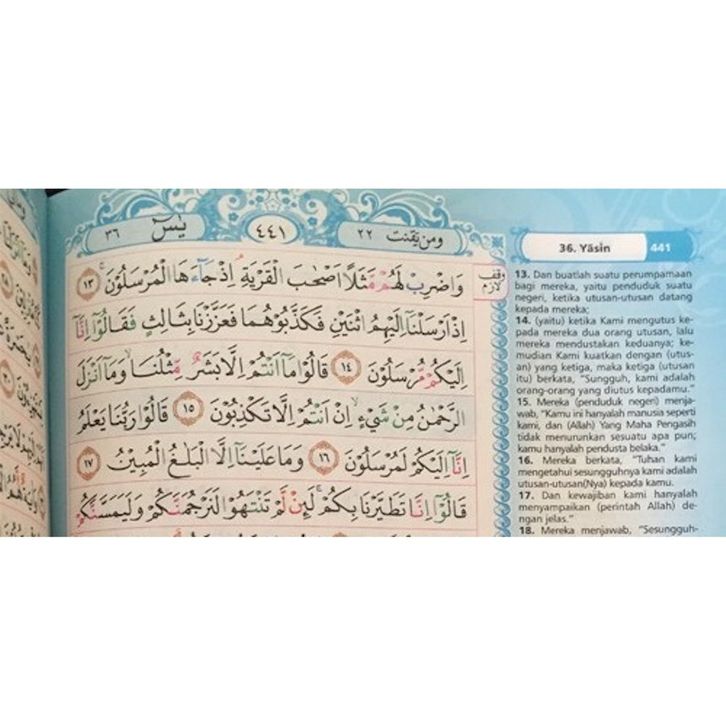 يٰسٓ ٣٦
٤٤١
ومن يقنت ٢٢
وَاضْرِبْ لَهُمْ مَّثَلًا اَصْحٰبَ الْقَرْيَةِۘ اِذْ جَاۤءَهَا الْمُرْسَلُوْنَۚ ١٣
وقف لازم
اِذْ اَرْسَلْنَآ اِلَيْهِمُ اثْنَيْنِ فَكَذَّبُوْهُمَا فَعَزَّزْنَا بِثَالِثٍ فَقَالُوْٓا اِنَّآ
اِلَيْكُمْ مُّرْسَلُوْنَ ١٤ قَالُوْا مَآ اَنْتُمْ اِلَّا بَشَرٌ مِّثْلُنَاۙ وَمَآ اَنْزَلَ
الرَّحْمٰنُ مِنْ شَيْءٍۙ اِنْ اَنْتُمْ اِلَّا تَكْذِبُوْنَ ١٥ قَالُوْا رَبُّنَا يَعْلَمُ
اِنَّآ اِلَيْكُمْ لَمُرْسَلُوْنَ ١٦ وَمَا عَلَيْنَآ اِلَّا الْبَلٰغُ الْمُبِيْنُ ١٧
قَالُوْٓا اِنَّا تَطَيَّرْنَا بِكُمْۚ لَىِٕنْ لَّمْ تَنْتَهُوْا لَنَرْجُمَنَّكُمْ وَلَيَمَسَّنَّكُمْ
36. Yāsin 441
13. Dan buatlah suatu perumpamaan
bagi mereka, yaitu penduduk suatu
negeri, ketika utusan-utusan datang
kepada mereka;
14. (yaitu) ketika Kami mengutus ke-
pada mereka dua orang utusan, lalu
mereka mendustakan keduanya; ke-
mudian Kami kuatkan dengan (utus-
an) yang ketiga, maka ketiga (utusan
itu) berkata, "Sungguh, kami adalah
orang-orang yang diutus kepadamu."
15. Mereka (penduduk negeri) menja-
wab, "Kamu ini hanyalah manusia seperti
kami, dan (Allah) Yang Maha Pengasih
tidak menurunkan sesuatu apa pun;
kamu hanyalah pendusta belaka."
16. Mereka berkata, "Tuhan kami
mengetahui sesungguhnya kami adalah
utusan-utusan(Nya) kepada kamu.
17. Dan kewajiban kami hanyalah
menyampaikan (perintah Allah) de-
ngan jelas."
18. Mereka menjawab, "Sesungguh-